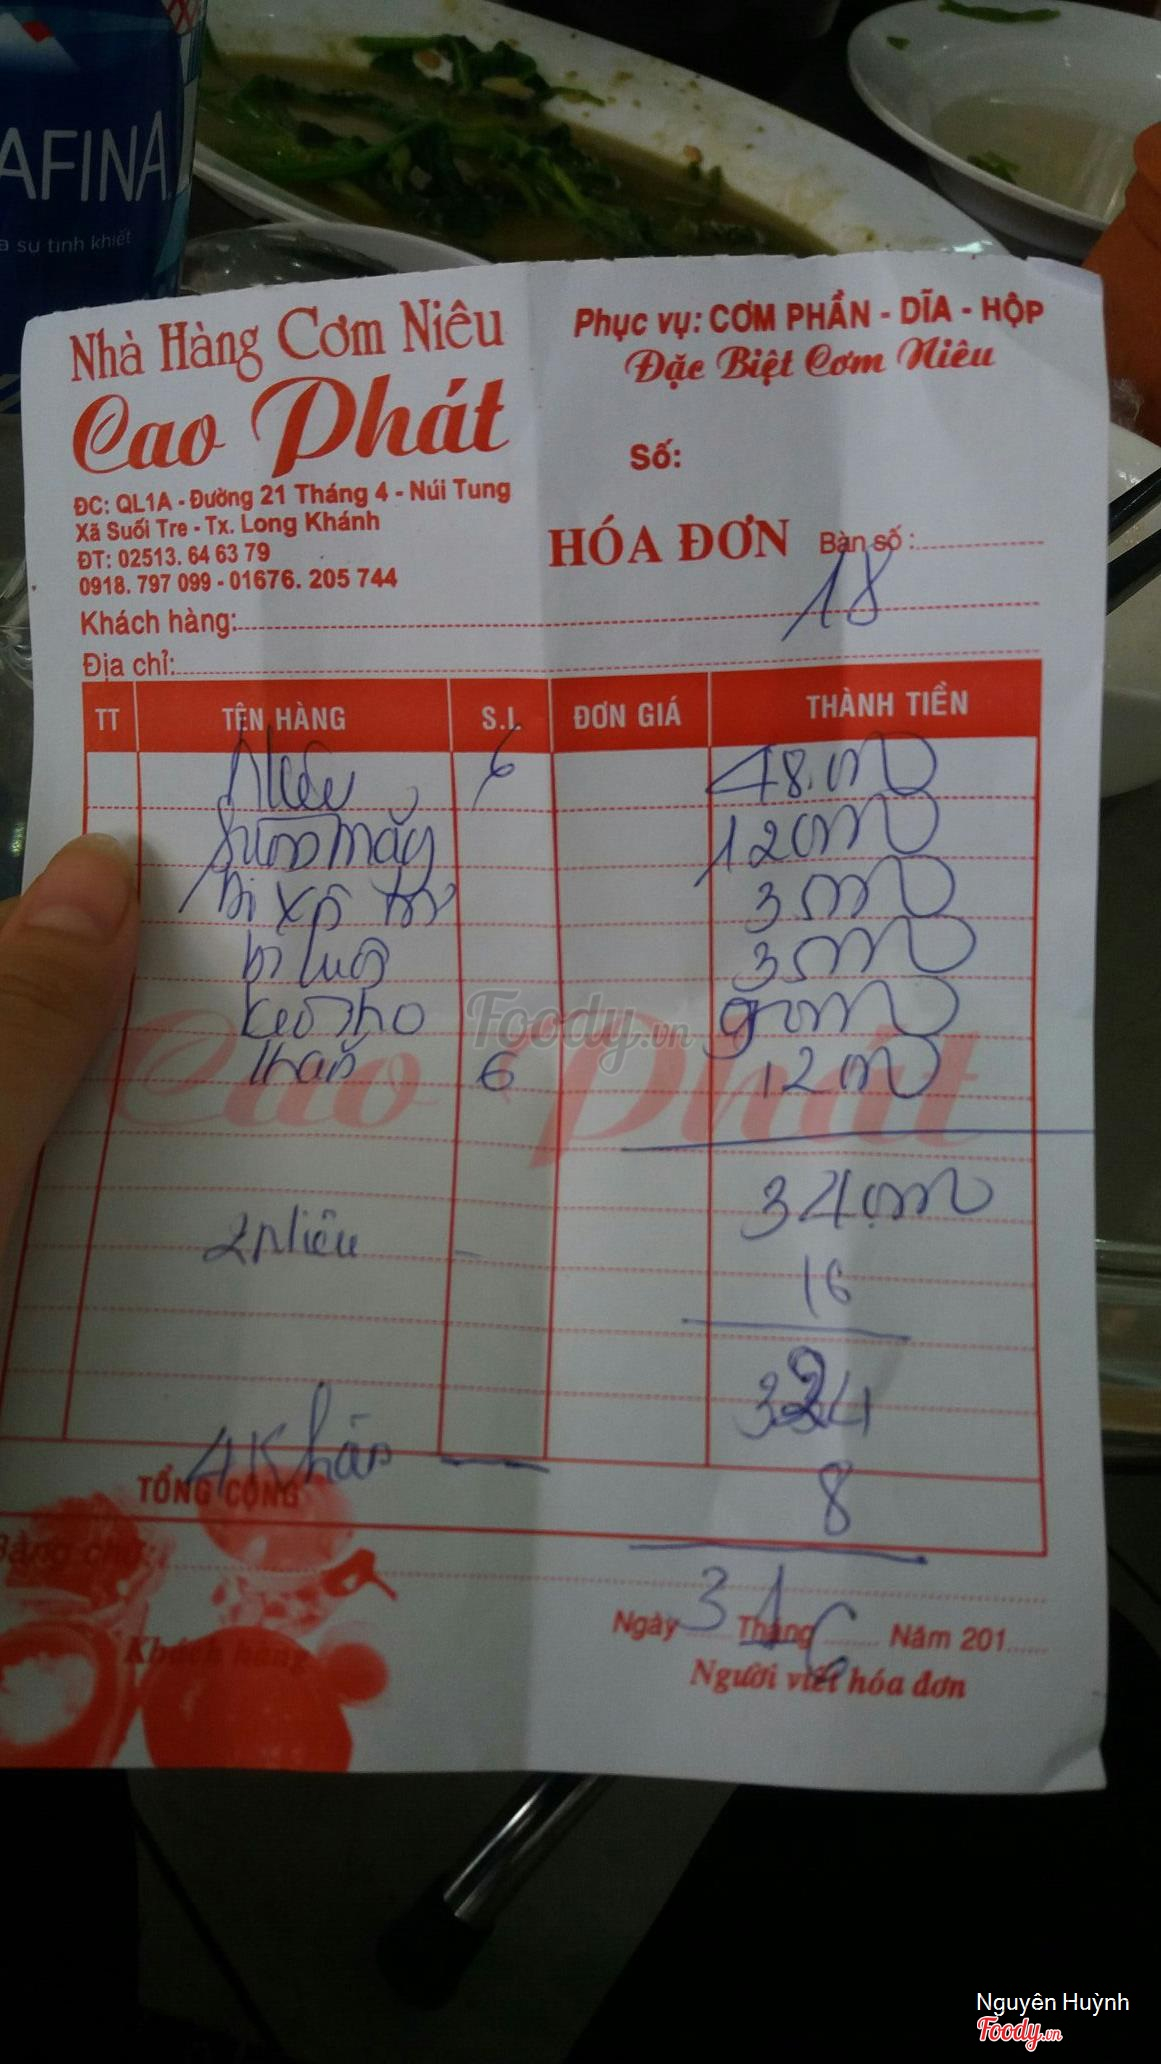 AFINA
sự tinh khiết
Nhà Hàng Cơm Niêu
Cao Phát
ĐC: QL1A - Đường 21 Tháng 4 - Núi Tung
Xã Suối Tre - Tx. Long Khánh
ĐT: 02513. 64 63 79
0918. 797 099 - 01676. 205 744
Phục vụ: CƠM PHẦN - DĨA - HỘP
Đặc Biệt Cơm Niêu
Số:
HÓA ĐƠN Bàn số:
18
Khách hàng:
Địa chỉ:
TT TÊN HÀNG S.L ĐƠN GIÁ THÀNH TIỀN
Niêu 6 48.000
Sườn 120.000
xô 30.000
bí luộc 30.000
kho
khăn 6 12.000
Cao Phát
340.000
2 niêu 16
324
4 Khăn 8
TỔNG CỘNG
Bằng chữ:
316
Ngày Tháng Năm 201
Khách hàng
Người viết hóa đơn
Foody.vn
Nguyên Huỳnh
Foody.vn